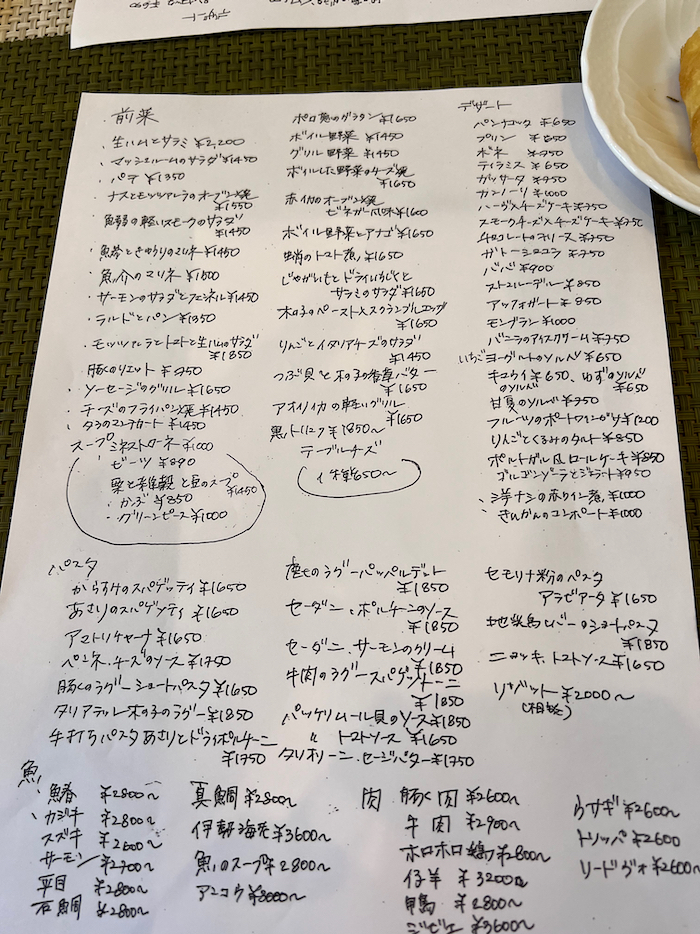 前菜
・生ハムとサラミ ¥2,200
・マッシュルームのサラダ¥1450
・パテ ¥1350
・ナスとモッツァレラのオーブン焼
¥1550
の軽いスモークのサラダ
¥1450
ときゅうりのマリネ ¥1450
・魚介のマリネ ¥1800
・サーモンのサラダとフェンネル¥1450
・ラルドとパン ¥1350
・モッツァレラとトマトと生ハムのサラダ
¥1850
豚のリエット ¥950
・ソーセージのグリル¥1650
・チーズのフライパン焼¥1450
・タラのマンテカート ¥1450
スープ ミネストローネ¥1000
ビーツ ¥890
栗と雑穀と豆のスープ
¥1450
・かぶ ¥850
・グリーンピース¥1000
ポロ葱のグラタン ¥1650
ボイル野菜 ¥1450
グリル野菜 ¥1450
ボイルした野菜のチーズ焼
¥1650
赤イカのオーブン焼
ビネガー風味¥1600
ボイル野菜とアナゴ¥1650
蛸のトマト煮 ¥1650
じゃがいもとドライいちじくと
サラミのサラダ¥1650
木の子のペーストとスクランブルエッグ
¥1650
りんごとイタリアチーズのサラダ
¥1450
つぶ貝と木の子の香草バター
¥1650
アオリイカの軽いグリル
¥1650
黒トリュフ ¥1850〜
テーブルチーズ
1種¥650〜
デザート
パンナコッタ ¥650
プリン ¥650
ボネ ¥950
ティラミス ¥650
カッサータ ¥950
カンノーリ ¥1000
ハーヴ×チーズケーキ ¥750
スモークチーズ×チーズケーキ ¥750
チョコレートのテリーヌ ¥750
ガトーショコラ ¥750
ババ ¥900
ストゥルーデル ¥850
アッフォガート ¥850
モンブラン ¥1000
バニラのアイスクリーム ¥750
いちごヨーグルトのソルベ ¥650
キュウイ ¥650、ゆずのソルベ
のソルベ ¥650
甘夏のソルベ ¥950
フルーツのポートワインがけ ¥1200
りんごとくるみのタルト ¥850
ポルトガル風ロールケーキ ¥850
ゴルゴンゾーラとジェラート¥950
洋ナシの赤ワイン煮 ¥1000
きんかんのコンポート ¥1000
パスタ
からすみのスパゲッティ ¥1650
あさりのスパゲッティ ¥1650
アマトリチャーナ ¥1650
ペンネ・チーズのソース ¥1750
豚のラグーショートパスタ ¥1650
タリアテッレ木の子のラグー¥1850
手打ちパスタ あさりとドライポルチーニ
¥1750
のラグーパッパルデッレ
¥1850
セーダニ・ポルチーニのソース
¥1850
セーダニ・サーモンのクリーム
¥1850
牛肉のラグースパゲットーニ
¥1850
パッケリムール貝のソース¥1850
〃 トマトソース ¥1650
タリオリーニ・セージバター¥1750
セモリナ粉のパスタ
アラビアータ ¥1650
地鶏レバーのショートパスタ
¥1850
ニョッキ、トマトソース¥1650
リゾット ¥2000〜
(相談)
魚
鰆 ¥2800〜
カジキ ¥2800〜
スズキ ¥2600〜
サーモン ¥2700〜
平目 ¥2800〜
石鯛 ¥2800〜
真鯛 ¥2800〜
伊勢海老 ¥3600〜
魚のスープ ¥2800〜
アンコウ ¥3000〜
肉
豚肉 ¥2600〜
牛肉 ¥2900〜
ホロホロ鶏 ¥2800〜
仔羊 ¥3200〜
鴨 ¥2800〜
ジビエ ¥3600〜
ウサギ ¥2600〜
トリッパ ¥2600
リードヴォー ¥2600〜